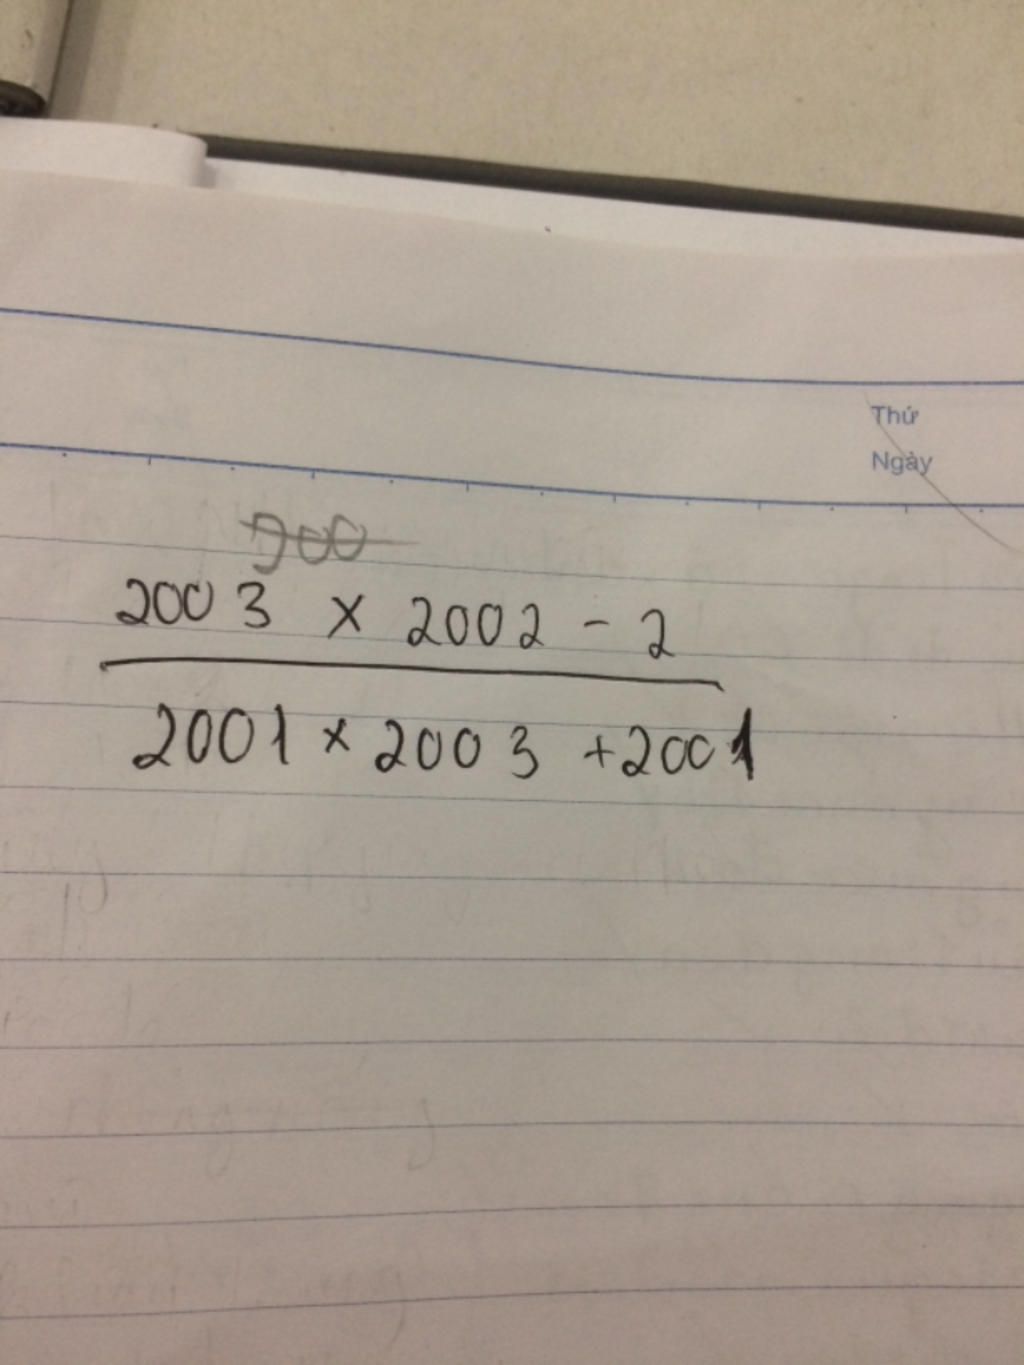 Thứ
Ngày
900
2003 x 2002 - 2
2001 x 2003 + 2001